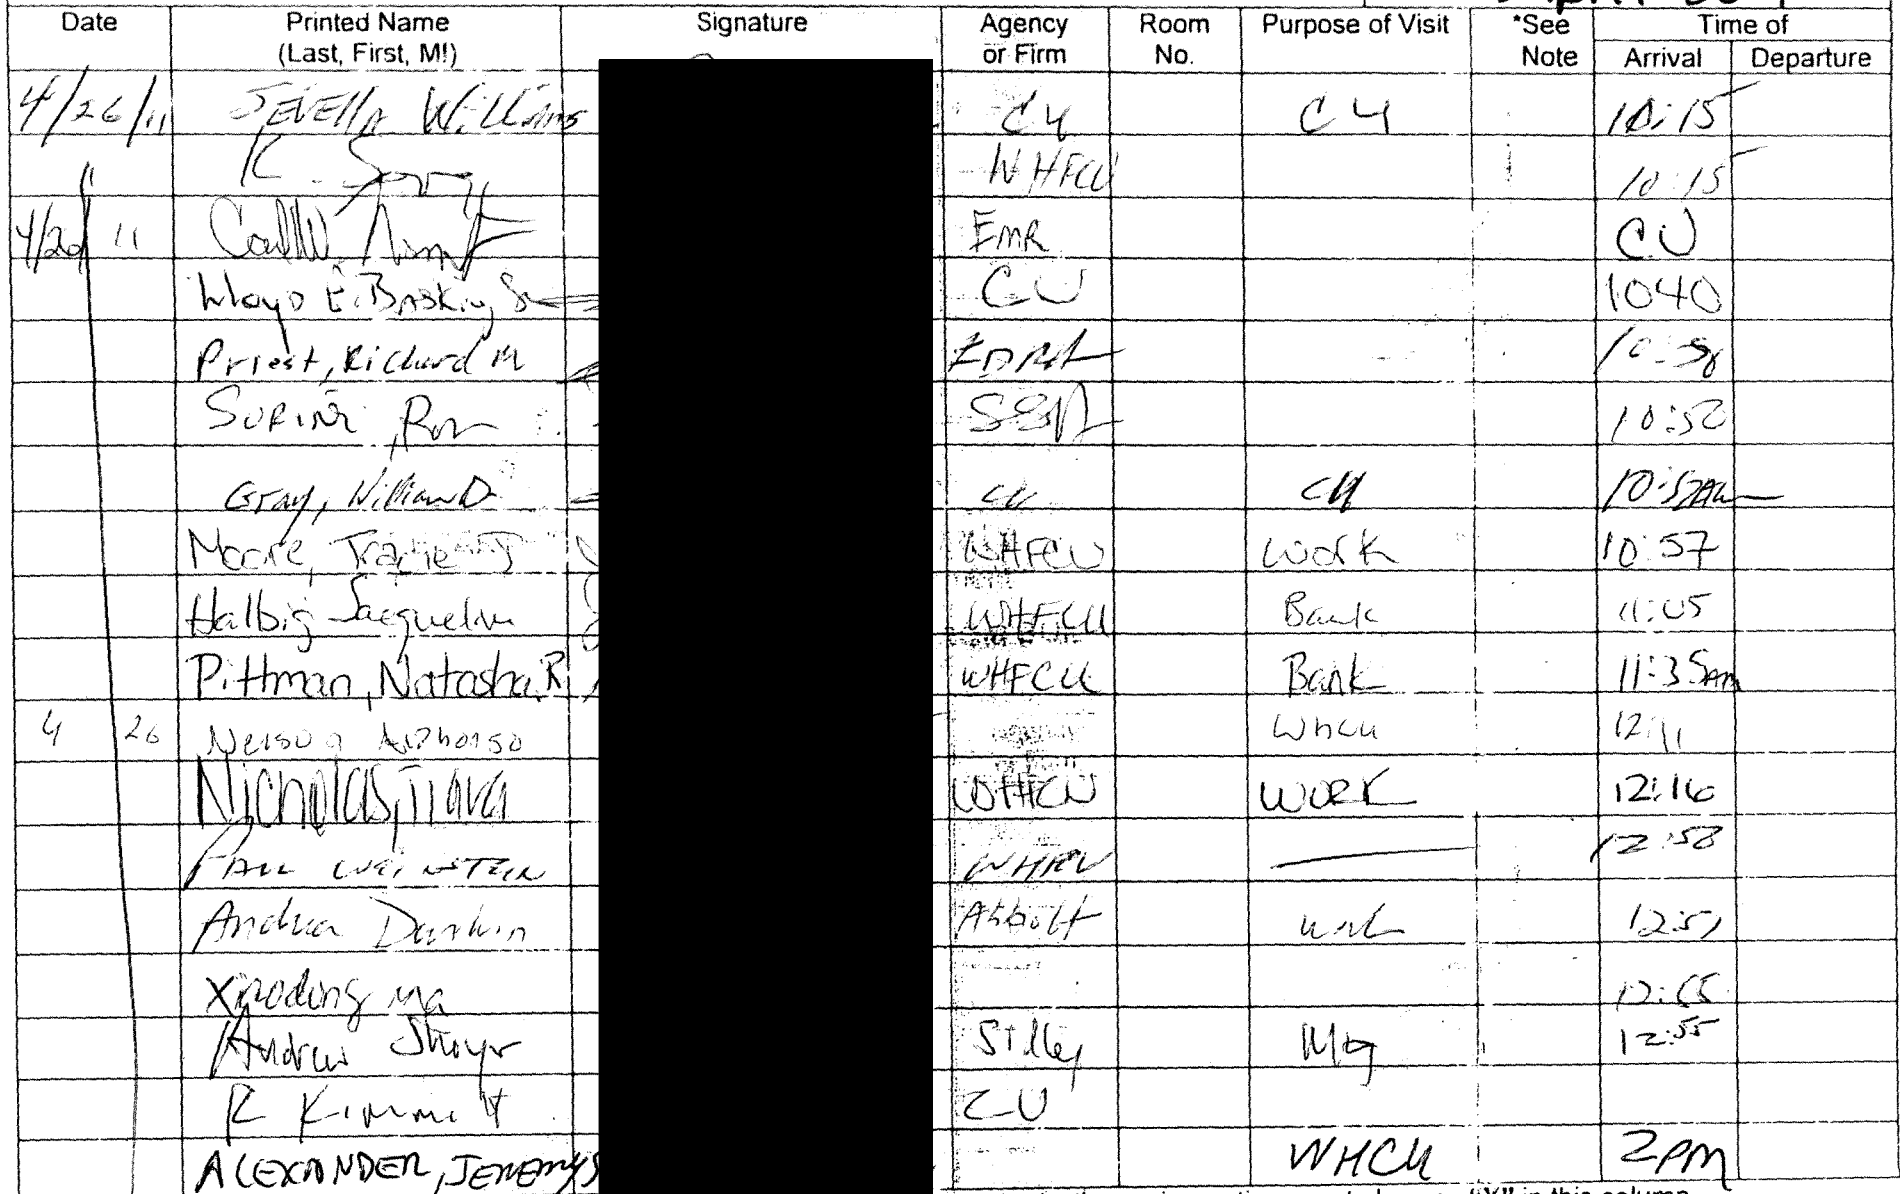 Date Printed Name Signature Agency Room Purpose of Visit *See Time of
(Last, First, M!) or Firm No. Note Arrival Departure
4/26/11 JEVEllA WillIAMS C U C U 10:15
11 K. WHFCU 10:15
4/26 11 EMR CU
Lloyd E. BASKiN, Sr CU 1040
Priest, Richard M
Ron SSA 10:50
Gray, William D CU CU 10:57AM
Moore, Tracie J WHFCU Work 10:57
Halbig Jacquelin WHFCU Bank 11:05
Pittman, Natasha, R WHFCU Bank 11:35AM
4 26 Nelson Alphonso Whcu 12:11
Nicholas, Tiara WHCU WORK 12:16
PAUL WEINSTEIN 12:50
Andrea Durkin Abbott work 12:51
Xiaodong Ma 12:55
Andrew Shoyer Sidley Mtg 12:55
R Kimmitt CU
ALEXANDER, JEREMY S WHCU 2PM
"X" in this column